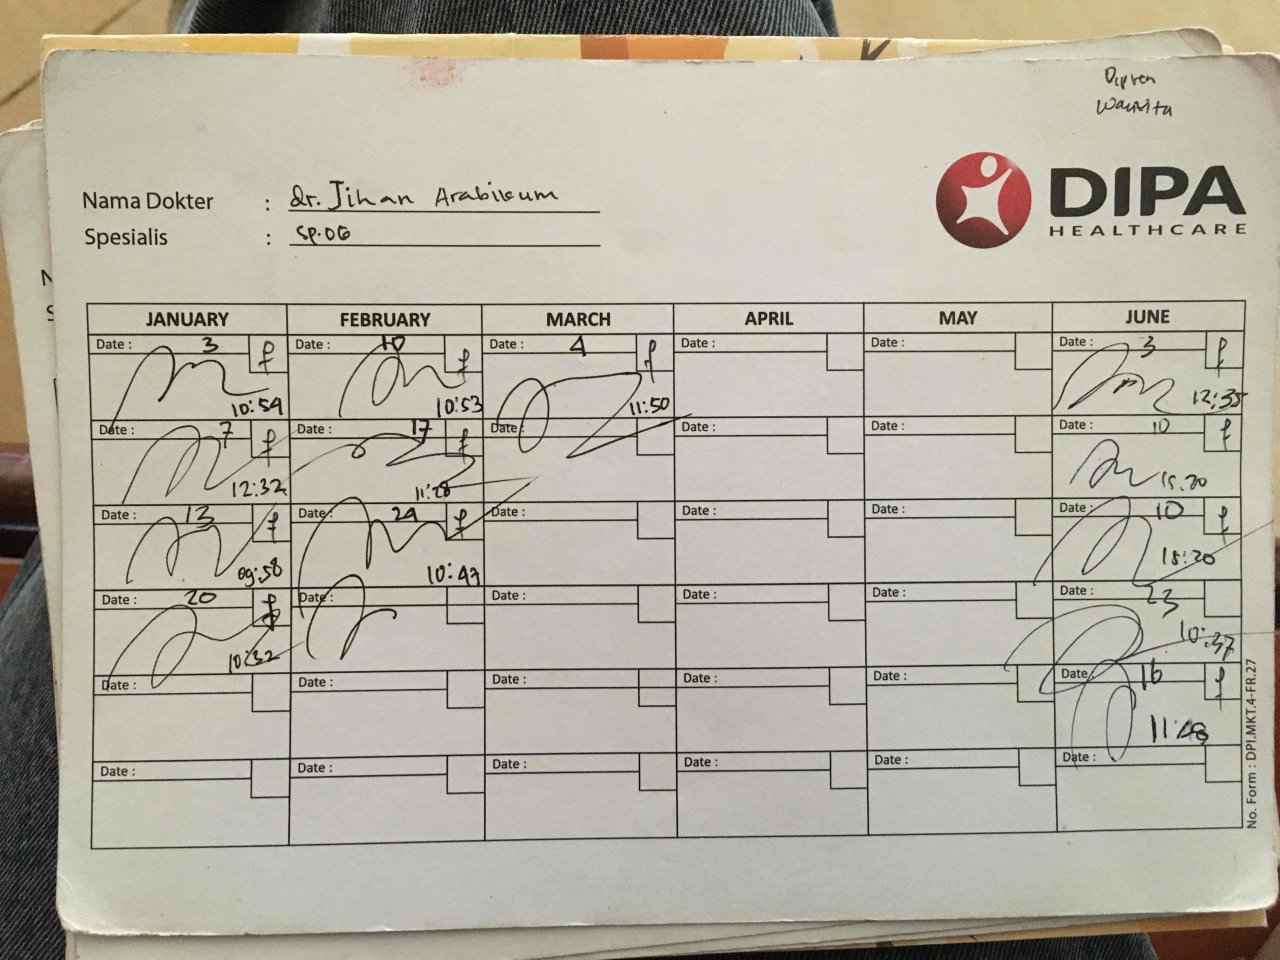 Nama Dokter : dr. Jihan Arabikum
Spesialis : SP.OG
DIPA
HEALTHCARE
JANUARY FEBRUARY MARCH APRIL MAY JUNE
Date : 3 f Date : 10 f Date : 4 f Date : Date : Date : 3 f
10:54 10:53 11:50 12:35
Date : 7 f Date : 17 f Date : Date : Date : Date : 10 f
12:32 11:28 15.20
Date : 13 f Date : 24 f Date : Date : Date : Date : 10 f
09:58 10:47 15:20
Date : 20 f Date : Date : Date : Date : 23
10:32 10:37
Date : Date : Date : Date : Date : Date : 16 f
11:48
Date : Date : Date : Date : Date : Date :
No. Form : DPI.MKT.4-FR.27